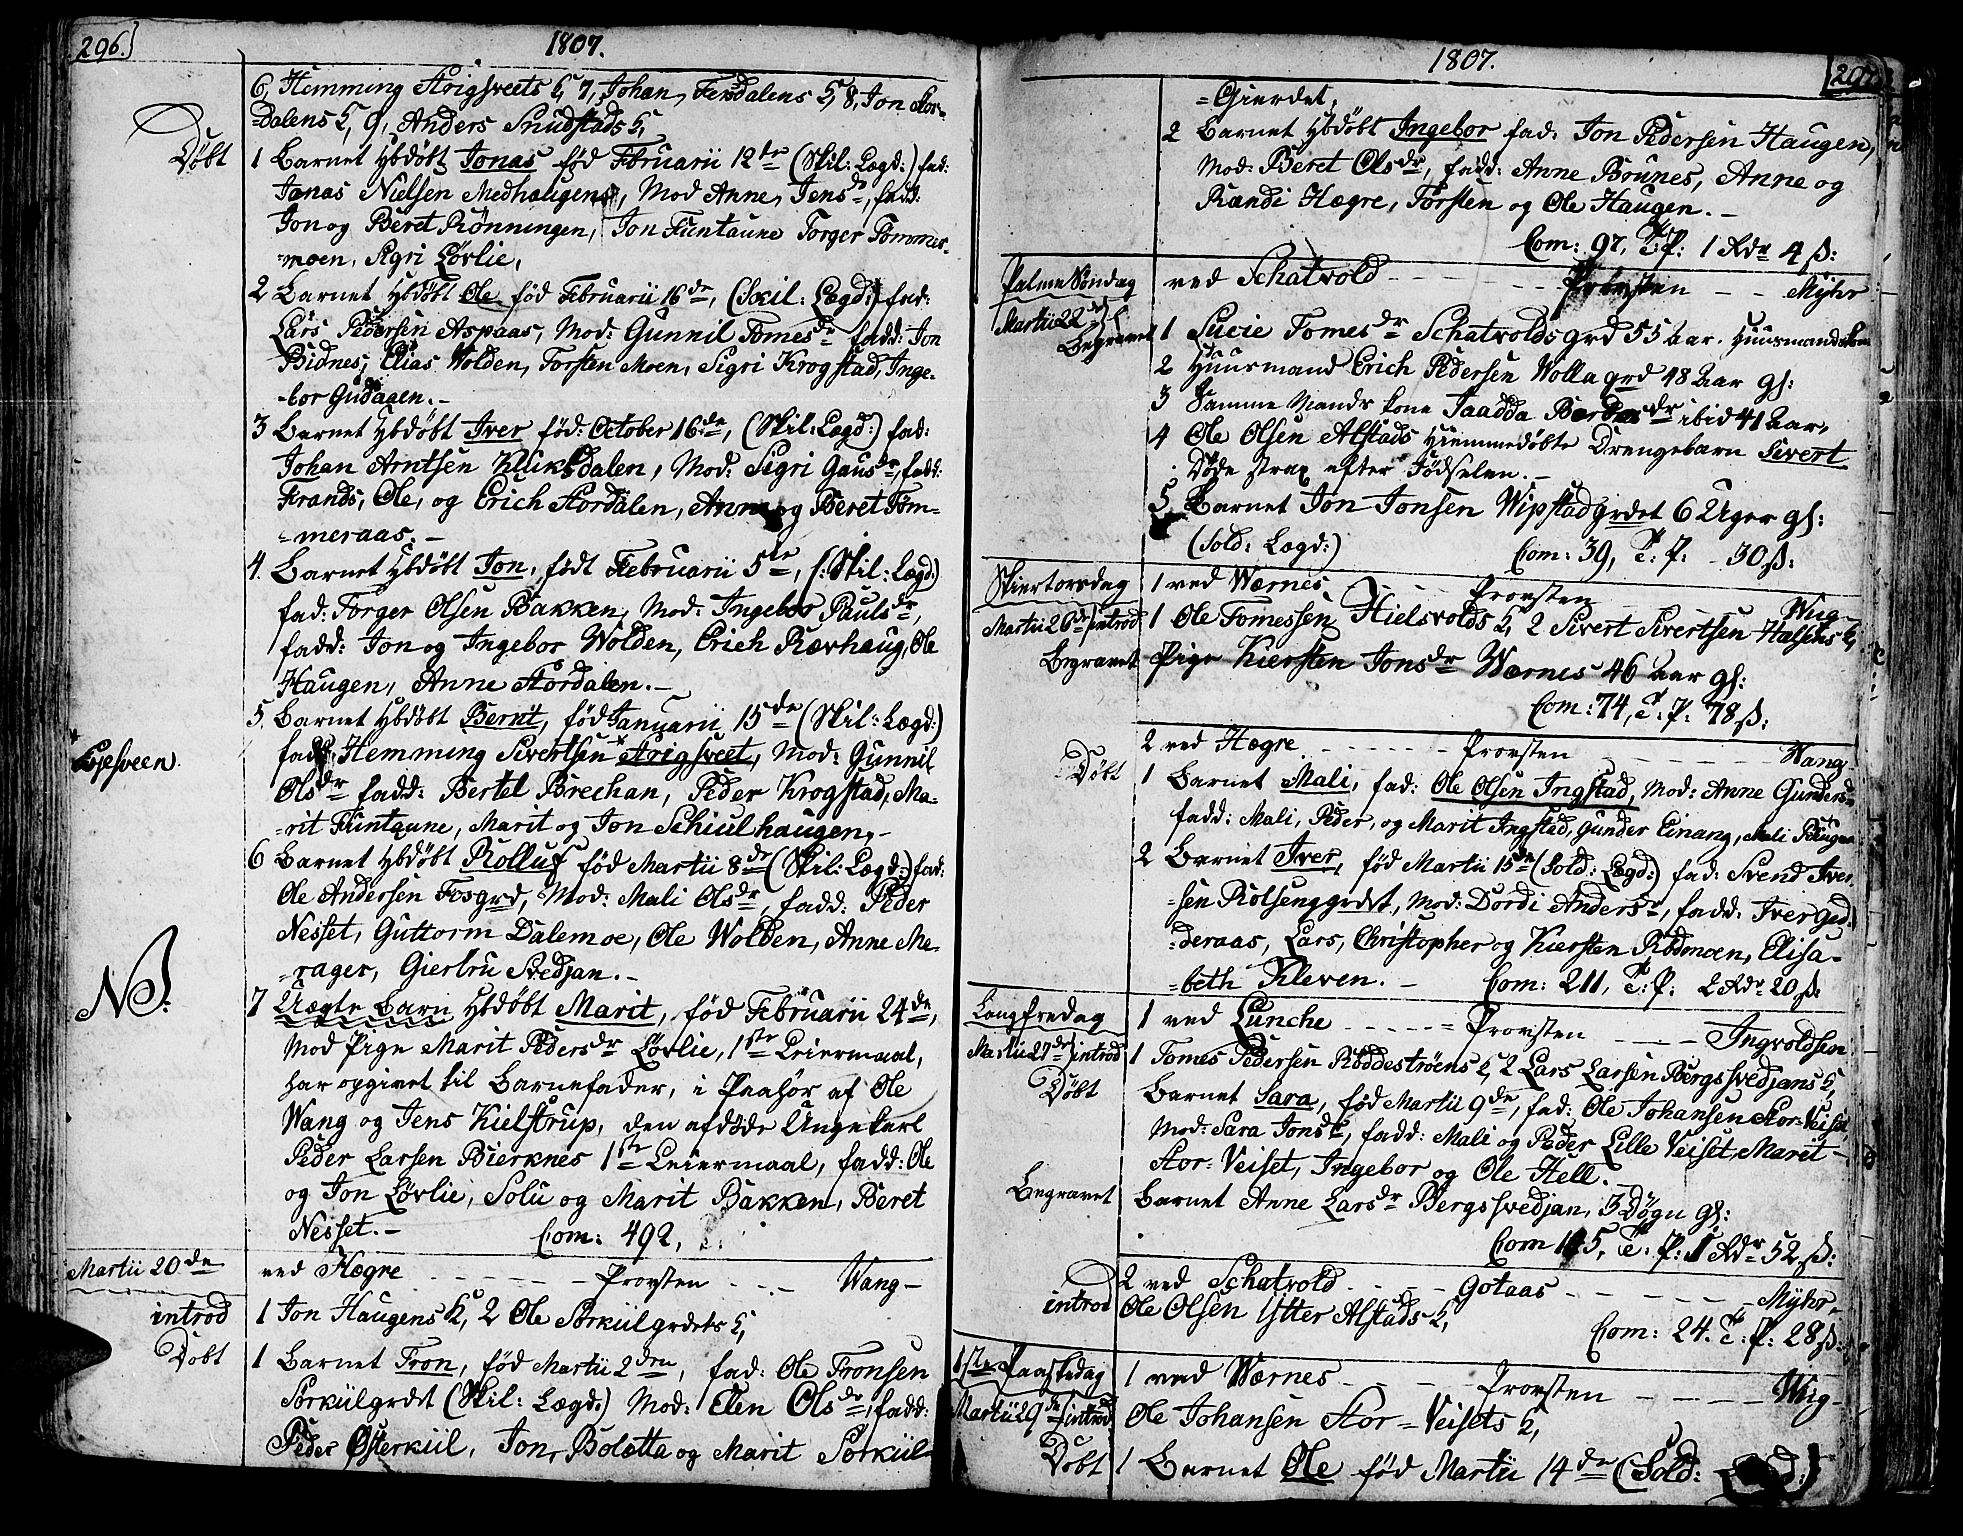 296.)
1807.
6, Hemming Arigsveets K, 7, Johan Ferdalens K, 8, Jon Stor-
=dalens K, 9, Anders Snudstads K,
Døbt 1 Barnet Hbdøbt Jonas fød Februarii 12de (Skil: Lægd:) fad:
Jonas Nielsen Medhaugen, Mod Anne Jensdr, fadd:
Jon og Beret Rönningen, Jon Funtaune Torger Tømmer-
=moen, Sigri Lövlie,
2 Barnet Hbdøbt Ole fød Februarii 16de, (Skil: Lægd:) fad:
Lars Pedersen Aspaas, Mod: Gunnil Tomesdr fadd: Jon
Bidnes, Elias Wolden, Torsten Moen, Sigri Krogstad, Inge-
-bor Gudagen.-
3 Barnet Hbdøbt Iver fød: October 16de, (Skil: Lægd:) fad:
Johan Arntsen Kluksdalen, Mod: Sigri Gausdr, fadd:
Frands, Ole, og Erich Stordalen, Anne og Beret Töm-
=meraas.-
4. Barnet Hbdøbt Jon, født Februarii 5te, (:Skil: Lægd:)
fad: Torger Olsen Bakken, Mod: Ingebor Paulsdr,
fadd: Jon og Ingebor Wolden, Erich Rævhaug, Ole
Haugen, Anne Stordalen.-
5. Barnet Hbdøbt Bernt, fød Januarii 15de (Skil: Lægd:)
fad: Hemming Sivertsen Arigsveet, Mod: Gunnil
Olsdr fadd: Bertel Brechan, Peder Krogstad, Ma-
=rit Funtaune, Marit og Jon Schiulhaugen,-
6 Barnet Hbdøbt Rolluf fød Martii 8de (Skil: Lægd:) fad:
Ole Andersen Fosgrd, Mod: Mali Olsdr, fadd: Peder
Nesset, Guttorm Dalemoe, Ole Wolden, Anne Me-
=rager, Giertru Svedjan.-
NB.
7 Uægte Barn Hbdøbt Marit, fød Februarii 24de,
Mod Pige Marit Pedersdr Lövlie, 1ste Leiermaal,
har opgivet til Barnefader, i Paahør af Ole
Wang og Jens Kielstrup, den afdøde Ungekarl
Peder Larsen Bierknes 1ste Leiermaal, fadd: Ole
og Jon Lövlie, Solu og Marit Bakken, Beret
Nesset.- Com: 492,
Martii 20de ved Hegre - - - Provsten - - - Wang-
introd 1 Jon Haugens K, 2 Ole Sorkiilgrdets K,
Døbt 1 Barnet Tron, fød Martii 2den, fad: Ole Tronsen
Sorkiilgrdet (Skil: Lægd:) Mod: Elen Olsdr, fadd:
Peder Østerkiil, Jon, Bolætta og Marit Sorkiil-
1807.
297
=Gierdet,
2 Barnet Hbdøbt Ingebor fad: Jon Pedersen Haugen,
Mod: Beret Olsdr, fadd: Anne Bounes, Anne og
Randi Hægre, Torsten og Ole Haugen.-
Com: 97, T: P: 1 Rdr 4 ß:
Palme Søndag ved Schatvold - - - Provsten - - Myhr
Martii 22de
Begravet 1 Lucie Tomesdr Schatvoldsgrd 55 aar. Huusmandskone
2 Huusmand Erich Pedersen Wollagrd 48 Aar gl:
3 Samme Mands kone Jaadda Bardosdr ibid 41 Aar,
4 Ole Olsen Alstads Hiemmedøbte Drengebarn Sivert
Døde strax efter Fødselen.-
5 Barnet Jon Jonsen Wipstadgrdet 6 Uger gl:
(Sold: Lægd:) Com: 39, T: P: - 30 ß:
Skiertorsdag 1 ved Wærnes - - - Provsten Wiig-
Martii 26de introd 1 Ole Tomessen Hielsvolds K, 2 Sivert Sivertsen Halsens K,
Begravet Pige Kiersten Jonsdr Wærnes 46 aar gl:
Com: 74, T: P: 78 ß:
2 ved Hægre - - - Provsten - - - Wang-
Døbt 1 Barnet Mali, fad: Ole Olsen Ingstad, Mod: Anne Gundersdr
fadd: Mali, Peder, og Marit Ingstad, Gunder Einang, Mali
2 Barnet Iver, fød Martii 15de (Sold: Lægd:) fad: Svend Iver-
=sen Rolsenggrdet, Mod: Dordi Andersdr, fadd: Iver Gud-
=deraas, Lars, Christopher og Kiersten Rödmoen, Elisa-
=beth Kleven.- Com: 211, T: P: 2 Rdr 20 ß:
Langfredag 1 ved Lunche - - - Provsten - - - Ingvoldsen
Martii 27de introd 1 Tomes Pedersen Röddeströens K, 2 Lars Larsen Bergssvedjans K,
Døbt Barnet Sara, fød Martii 9de, fad: Ole Johansen Stor-Veiset,
Mod: Sara Jonsdr, fadd: Mali og Peder Lille Veiset, Marit
Stor-Veiset, Ingebor og Ole Hell.-
Begravet Barnet Anne Larsdr Bergssvedjan, 3 Døgn gl:
Com 1 5, T: P: 1 Rdr 52 ß:
2 ved Schatvold - - - Gotaas - - - Myhr-
introd Ole Olsen Ytter Alstads K,
Com: 24. T: P: 28 ß:
1ste Paaskedag 1 ved Wærnes - - - Provsten - - - Wiig-
Martii 29de introd Ole Johansen Stor-Veisets K,
Døbt 1 Barnet Ole fød Martii 14de (Sold: